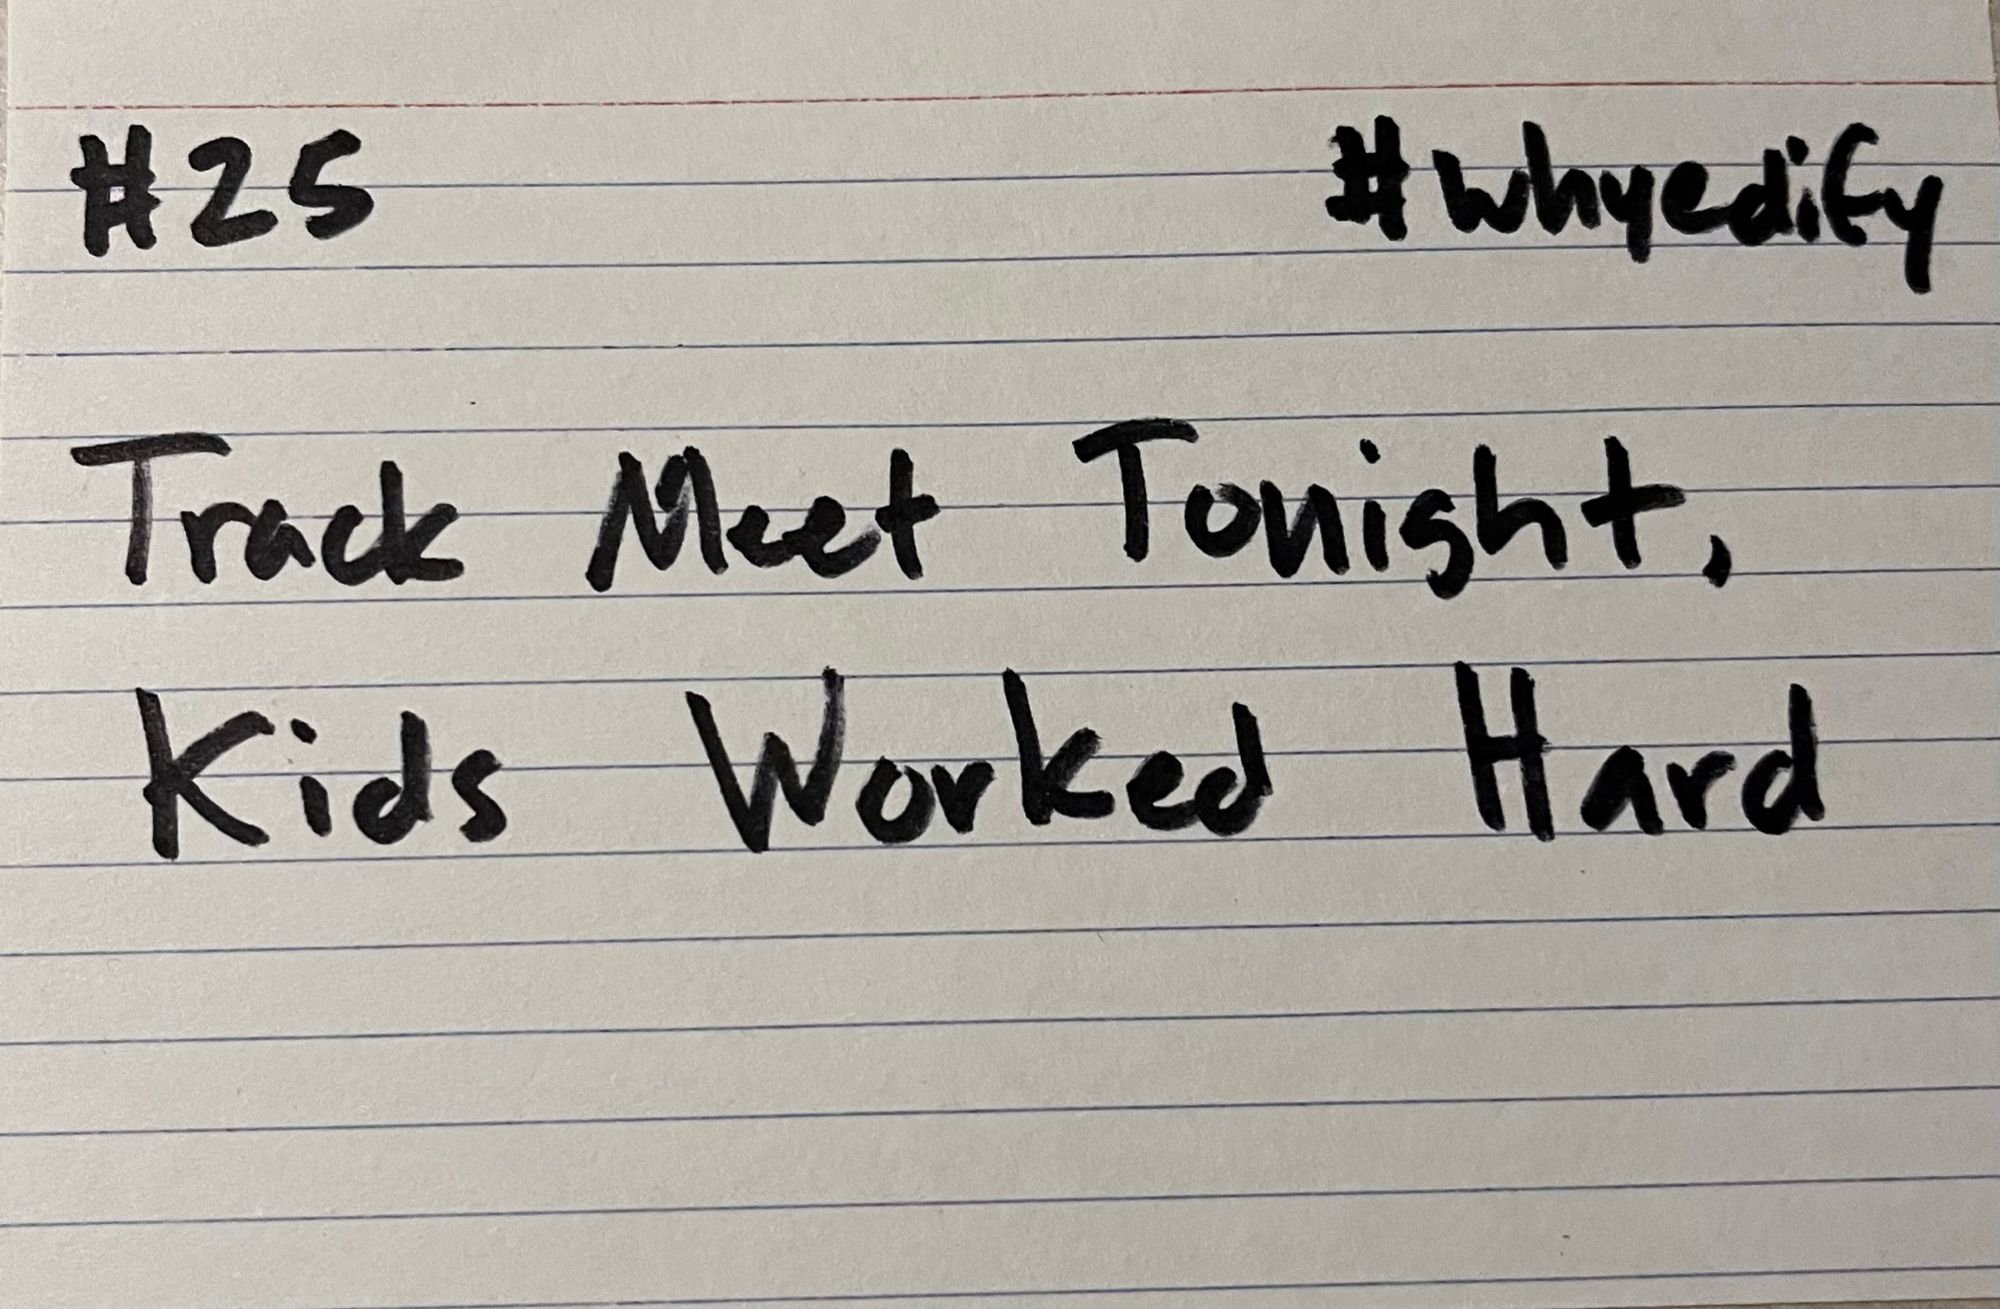 #25 #whyedify
Track Meet Tonight,
Kids Worked Hard